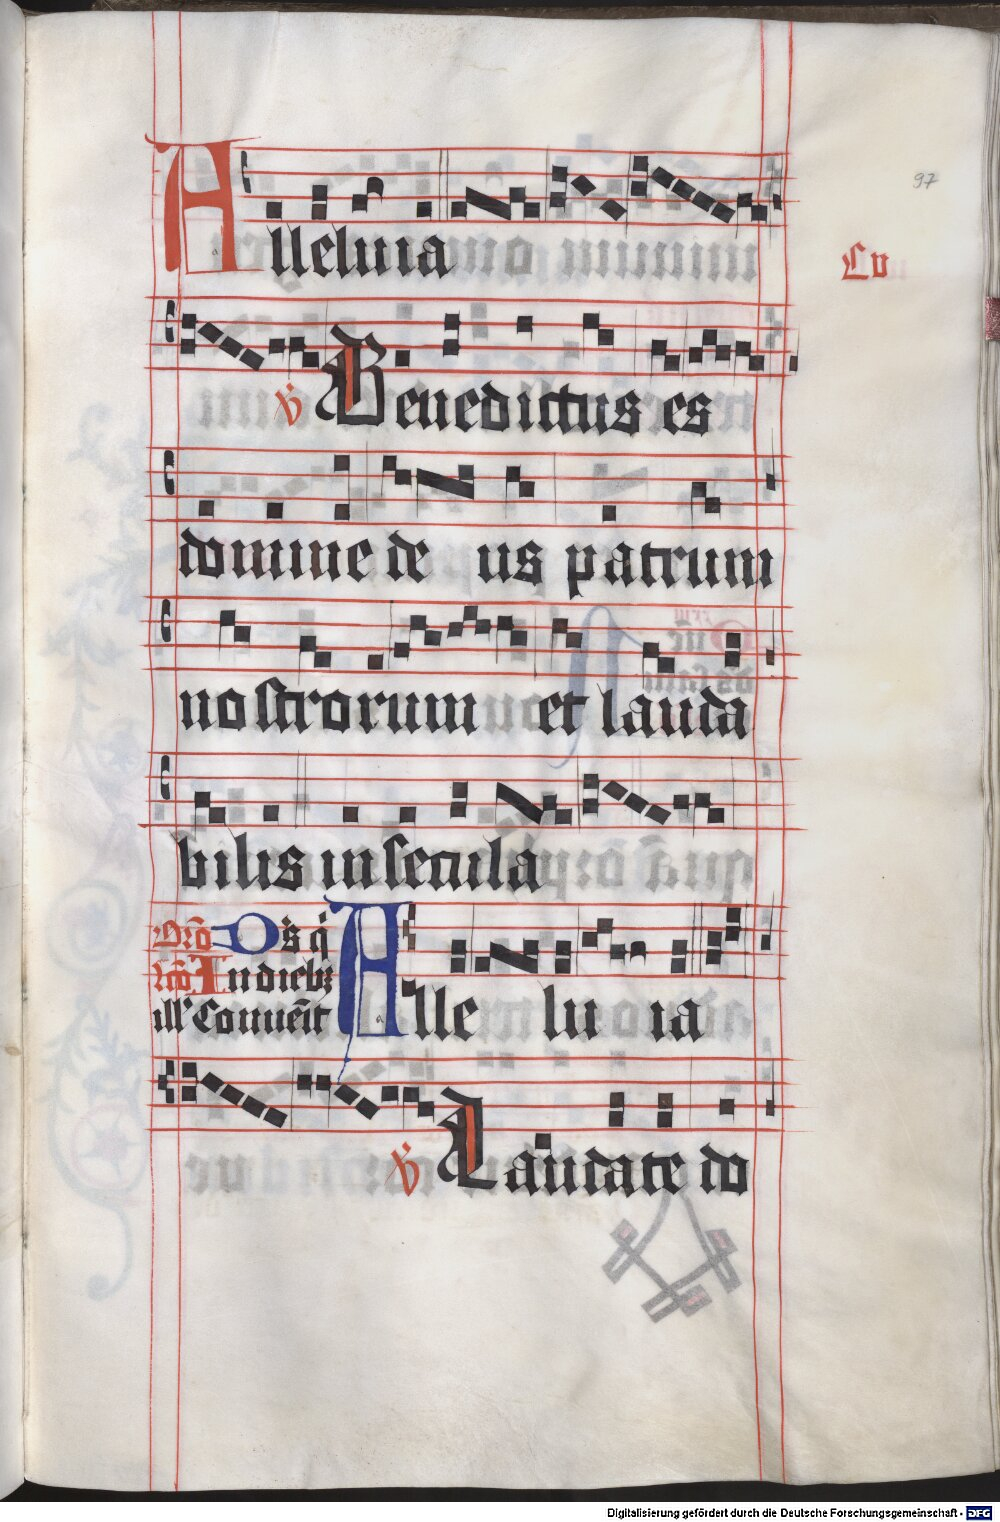 97
Alleluia
Lv
v̇ Benedictus es
domine de us patrum
nostrorum et lauda
bilis in secula
Orõ Ds q
Indiebꝫ
ill' Conueīt
Alle lu ia
v̇ Laudate do
Digitalisierung gefördert durch die Deutsche Forschungsgemeinschaft - DFG